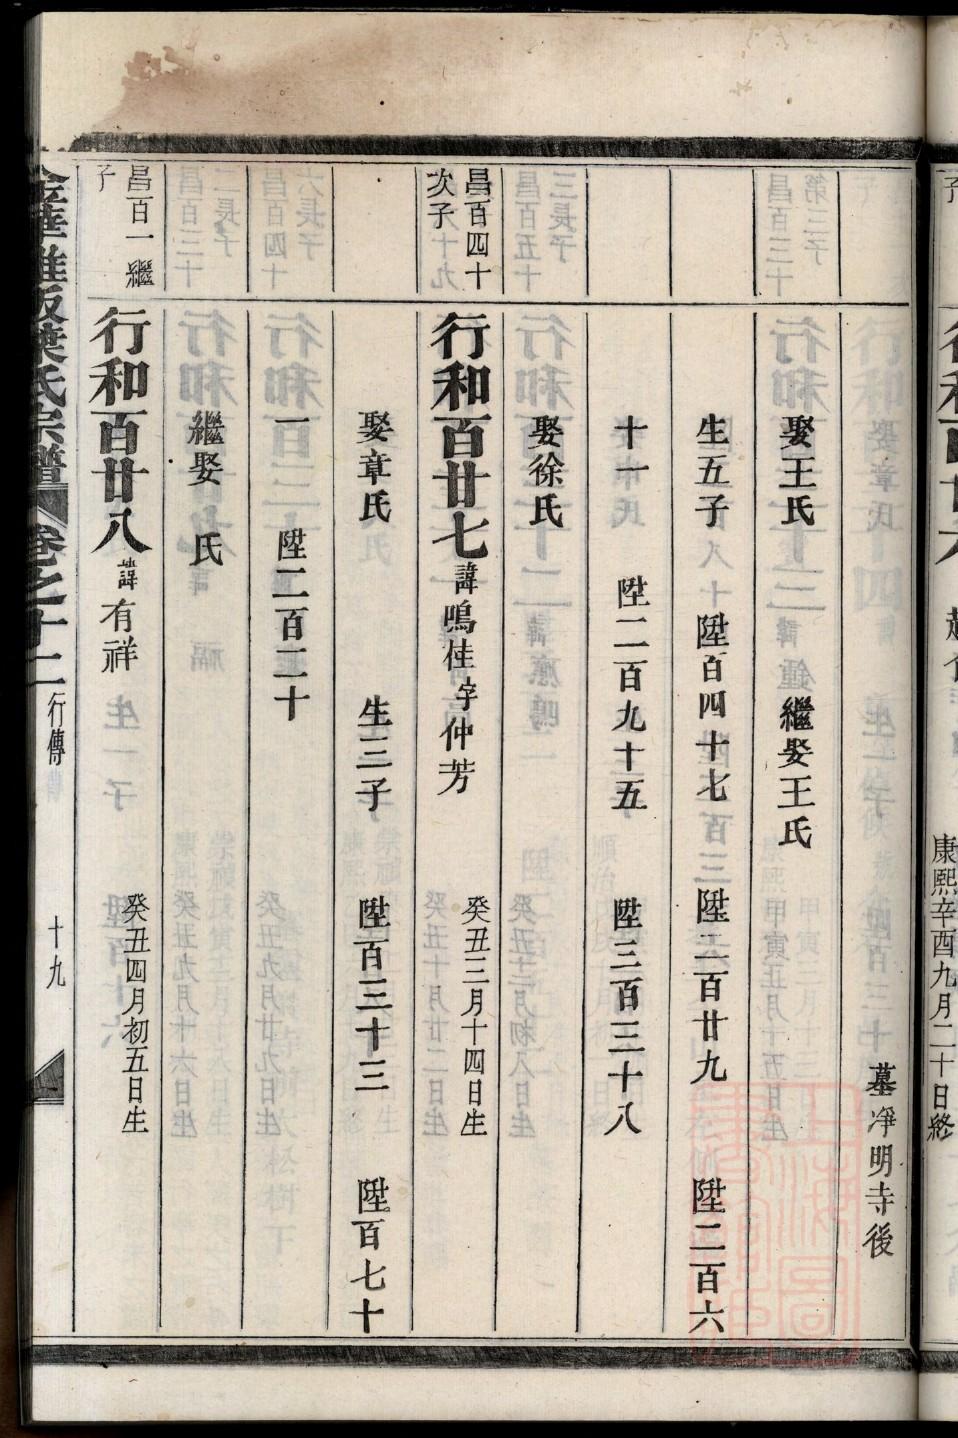 墓凈明寺後
娶王氏 繼娶王氏
生五子 陞百四十七 陞二百廿九 陞二百六
十一 陞二百九十五 陞三百三十八
娶徐氏
昌百四十
次子
行和百廿七 諱鳴桂 字仲芳 癸丑三月十四日生
娶章氏 生三子 陞百三十三 陞百七十
一 陞二百二十
繼娶 氏
昌百一繼
子
行和百廿八 諱有祥 癸丑四月初五日生
葉氏宗譜 卷之十二 行傳 十九
康熙辛酉九月二十日終